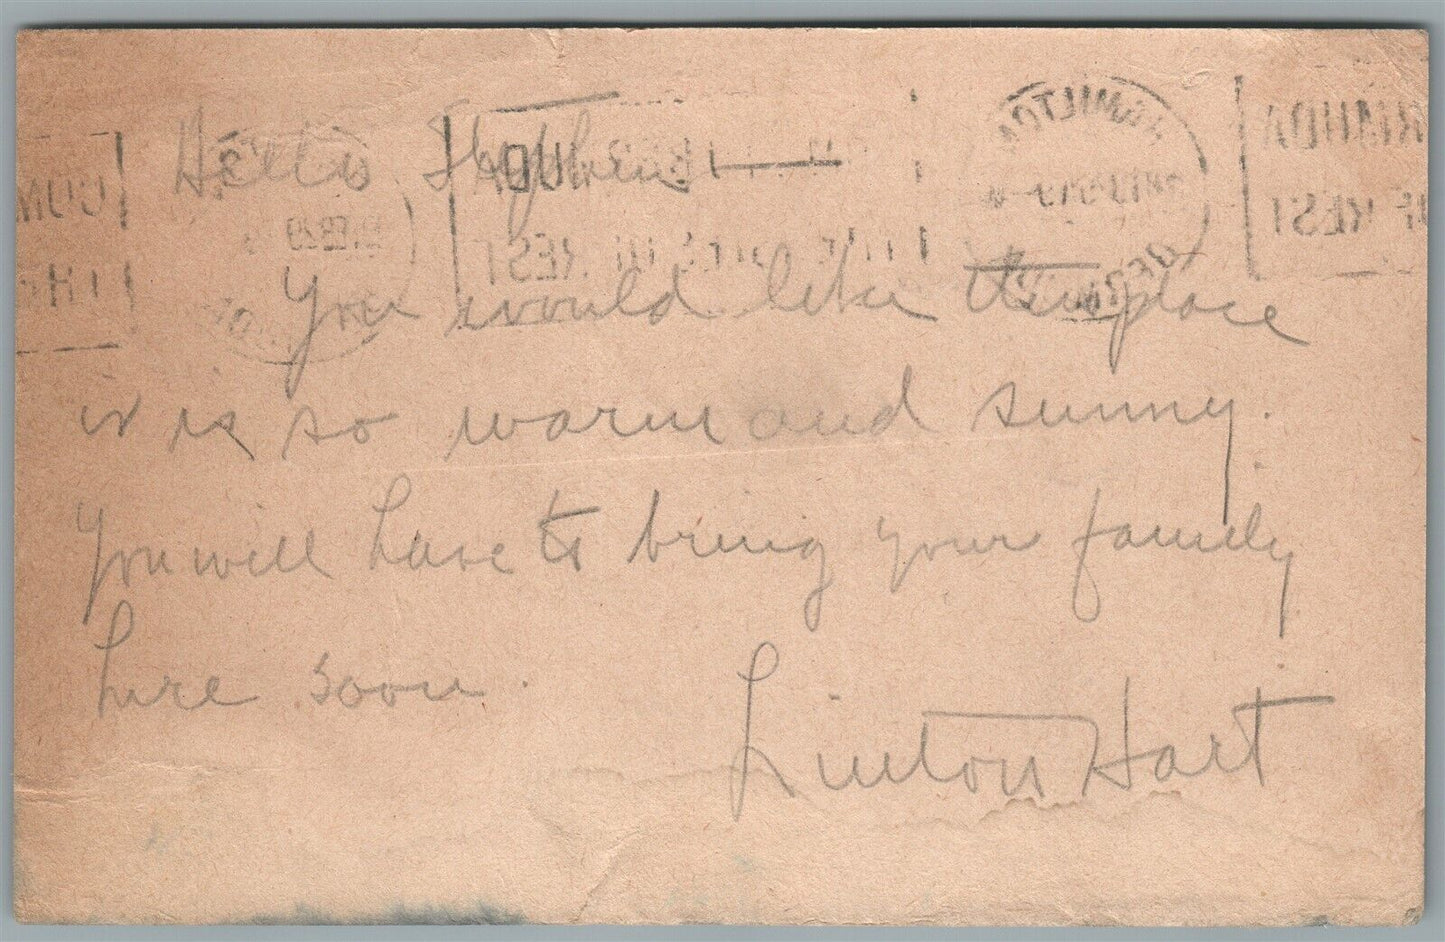 Hello Stephen —
You would like this place
it is so warm and sunny.
You will have to bring your family
here soon.
Linton Hart
HAMILTON
BERMUDA